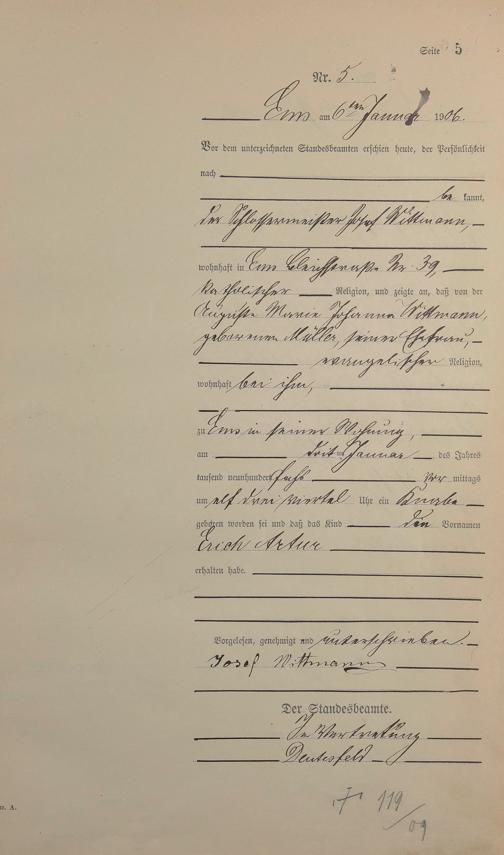 Seite 5
Nr. 5.
Ems am 6ten Januar 1906.
Vor dem unterzeichneten Standesbeamten erschien heute, der Persönlichkeit
nach
be kannt,
der Schlossermeister Josef Wittmann,
wohnhaft in Ems Bleichstraße Nr. 39,
katholischer Religion, und zeigte an, daß von der
Auguste Marie Johanna Wittmann,
geborenen Müller, seiner Ehefrau,
evangelischer Religion,
wohnhaft bei ihm,
zu Ems in seiner Wohnung,
am dritten Januar des Jahres
tausend neunhundert sechs vor mittags
um elf drei viertel Uhr ein Knabe
geboren worden sei und daß das Kind den Vornamen
Erich Artur
erhalten habe.
Vorgelesen, genehmigt und unterschrieben.
Josef Wittmann
Der Standesbeamte.
In Vertretung
119
/09